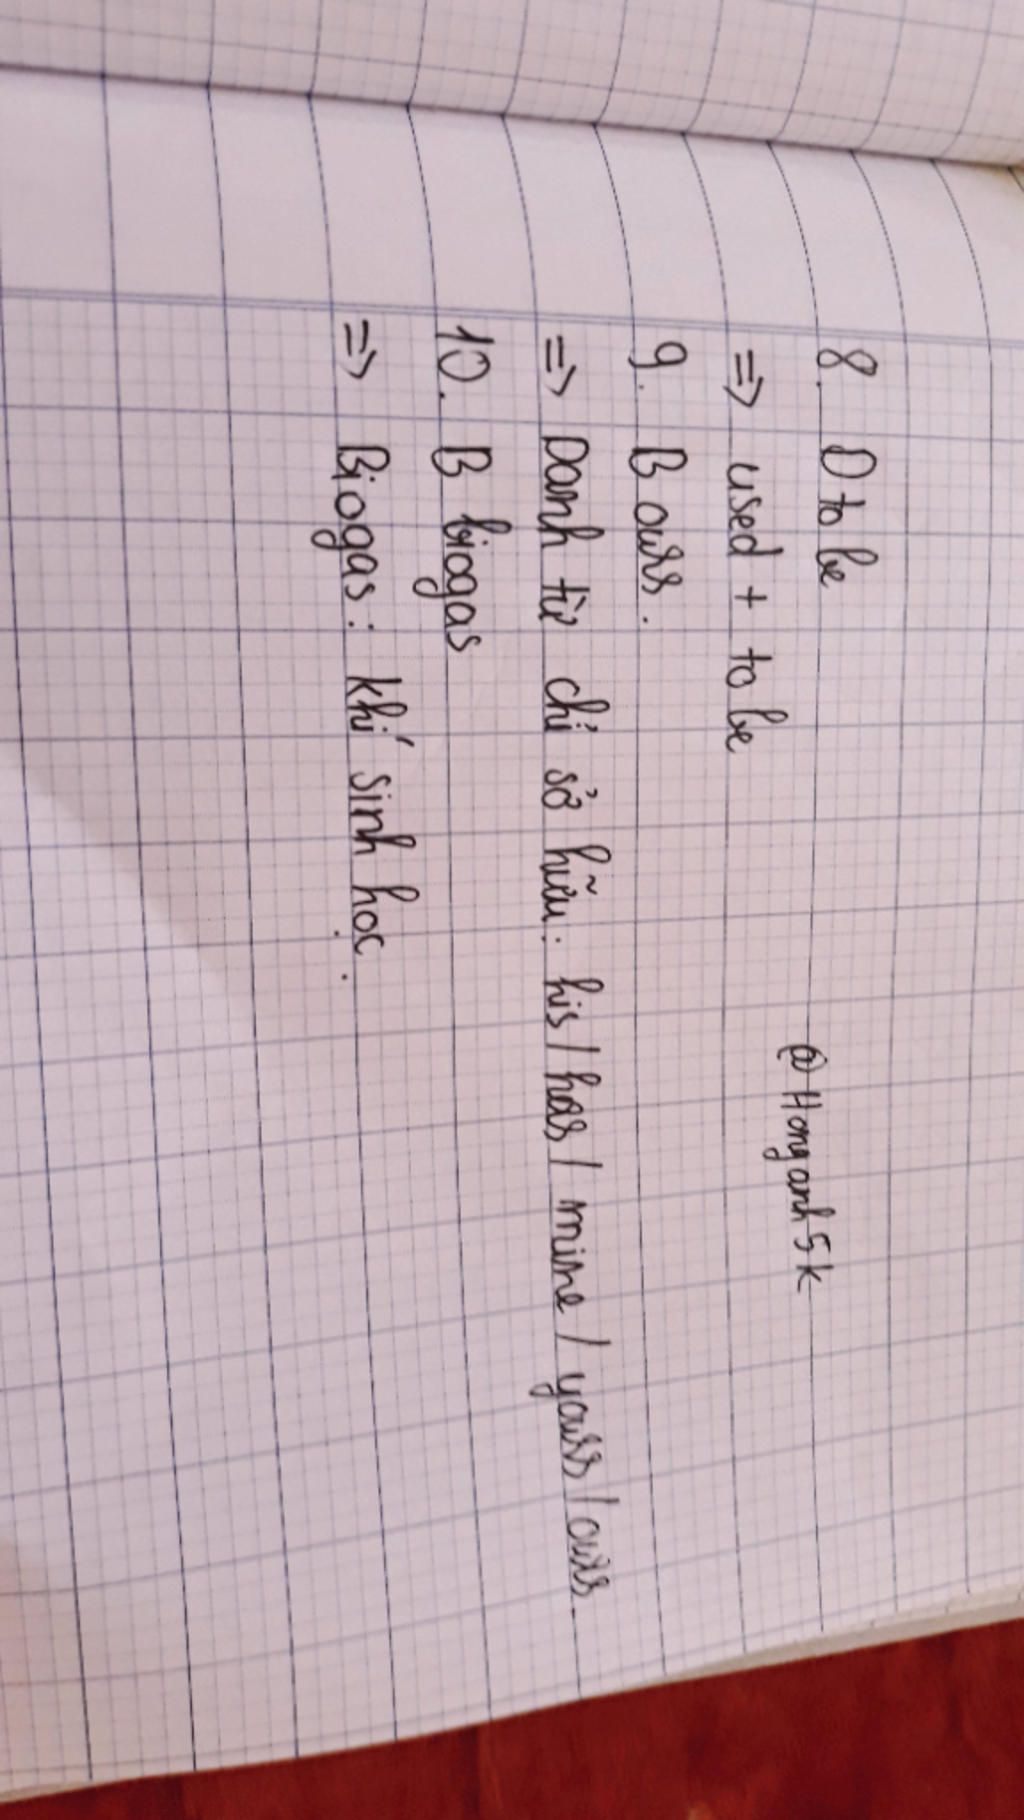 8. D to be
@Honganh5k
=> used + to be
9. B ours.
=> Danh từ chỉ sở hữu: his / hers / mine / yours / ours.
10. B biogas
=> Biogas: khí sinh học.